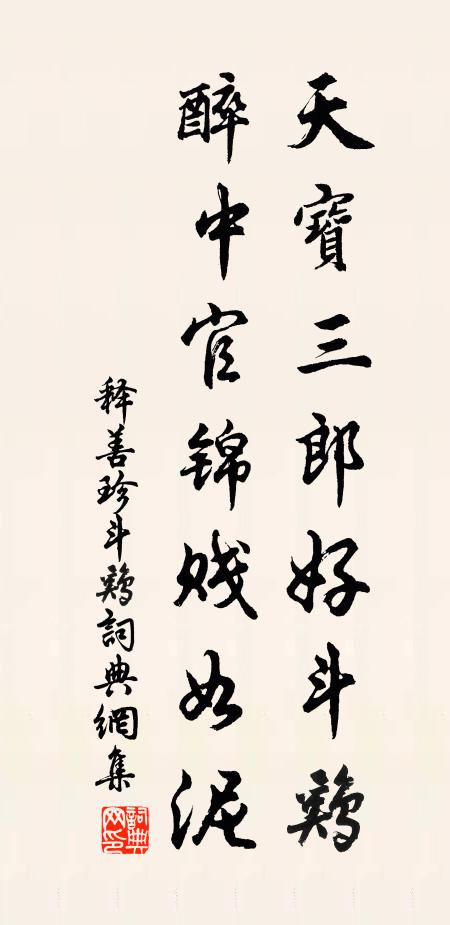 天寶三郎好斗鷄
醉中官錦賤如泥
释善珍斗鷄詞典網集
詞典网印